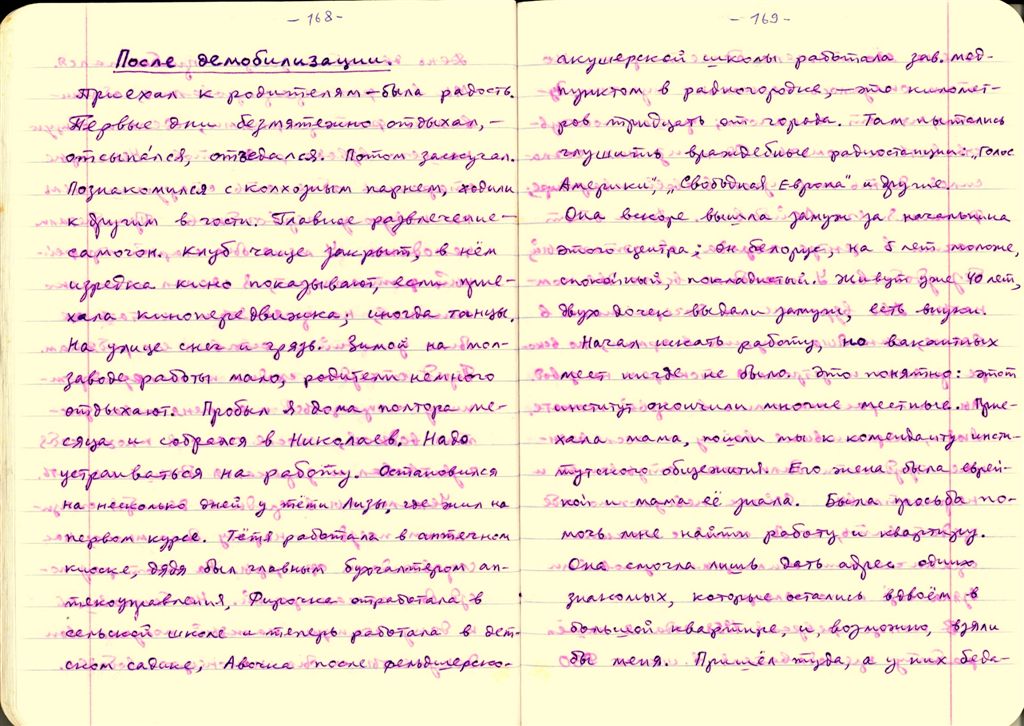 - 168 -
После демобилизации.
Приехал к родителям – была радость.
Первые дни безмятежно отдыхал, –
отсыпа́лся, отъедался. Потом заскучал.
Познакомился с колхозным парнем, ходили
к другим в гости. Главное развлечение –
самогон. Клуб чаще закрыт, в нём
изредка кино показывают, если прие-
хала кинопередвижка; иногда танцы.
На улице снег и грязь. Зимой на мол-
заводе работы мало, родители немного
отдыхают. Пробыл я дома полтора ме-
сяца и собрался в Николаев. Надо
устраиваться на работу. Остановился
на несколько дней у тёти Лизы, где жил на
первом курсе. Тётя работала в аптечном
киоске, дядя был главным бухгалтером ап-
текоуправления, Фирочка отработала в
сельской школе и теперь работала в дет-
ском садике, Авочка после фельдшерско-
- 169 -
акушерской школы работала зав. мед-
пунктом в радиогородке, – это километ-
ров тридцать от города. Там пытались
глушить враждебные радиостанции: „Голос
Америки", „Свободная Европа" и другие.
Она вскоре вышла замуж за начальника
этого центра; он белорус, на 5 лет моложе,
спокойный, покладистый. Живут уже 40 лет,
двух дочек выдали замуж, есть внуки.
Начал искать работу, но вакантных
мест нигде не было. Это понятно: этот
институт окончили многие местные. Прие-
хала мама, пошли мы к коменданту инсти-
тутского общежития. Его жена была еврей-
кой и мама её знала. Была просьба по-
мочь мне найти работу и квартиру.
Она смогла лишь дать адрес одних
знакомых, которые остались вдвоём в
большой квартире, и, возможно, взяли
бы меня. Пришёл туда, а у них беда-